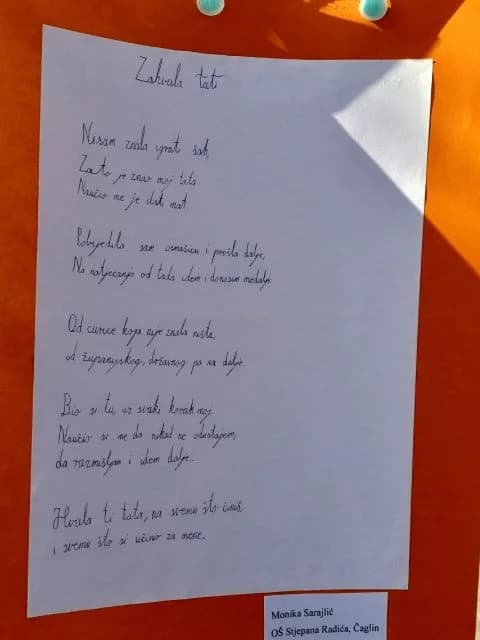 Zahvala tati
Nisam znala igrati šah,
Zato je znao moj tata.
Naučio me je dati mat.
Pobijedila sam osmašicu i prošla dalje,
Na natjecanja od tada idem i donosim medalje.
Od curice koja nije znala ništa,
od županijskog, državnog pa na dalje.
Bio si tu, uz svaki korak moj.
Naučio si me da nikad ne odustajem,
da razmišljam i idem dalje.
Hvala ti tata, na svemu što činiš
i svemu što si učinio za mene.
Monika Sarajlić
OŠ Stjepana Radića, Čaglin